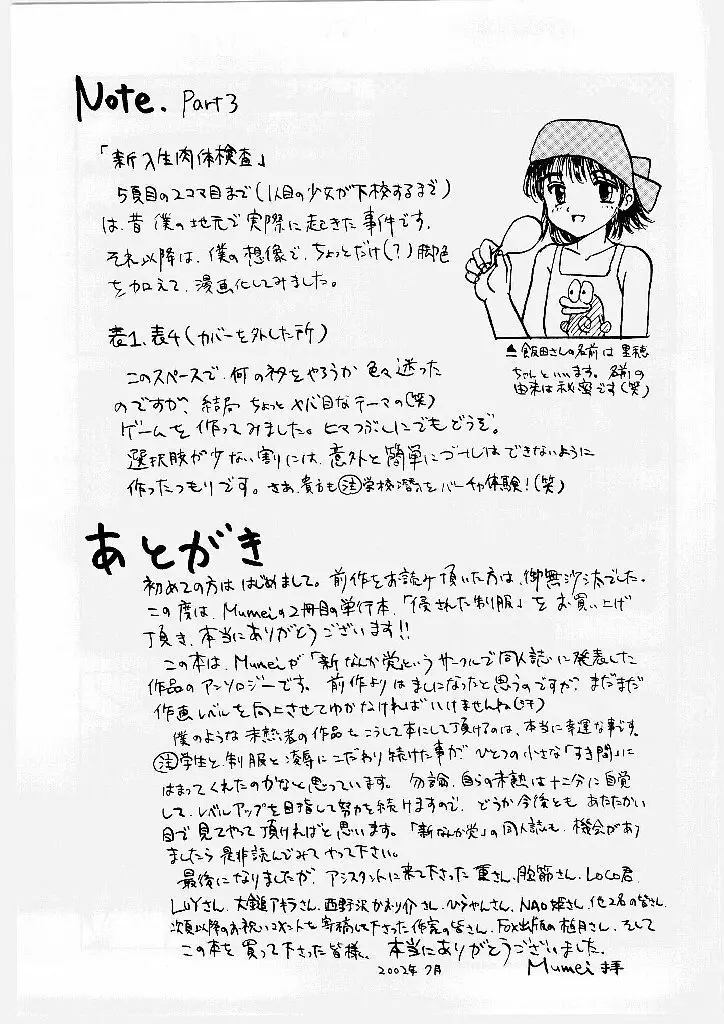 Note. Part 3
「新入生肉体検査」
5頁目の2コマ目まで(1人目の少女が下校するまで)
は、昔 僕の地元で実際に起きた事件です。
それ以降は、僕の想像で、ちょっとだけ(?)脚色
を加えて、漫画化してみました。
▲飯田さんの名前は 里穂
ちゃんといいます。名前の
由来は秘密です(笑)
表1、表4(カバーを外した所)
このスペースで、何のネタをやろうか 色々迷った
のですが、結局 ちょっと ヤバ目なテーマの(笑)
ゲームを 作ってみました。ヒマつぶしにでもどうぞ。
選択肢が少ない割りには、意外と簡単にゴールはできないように
作ったつもりです。さあ、貴方も 学校潜入をバーチャ体験!(笑)
あとがき
初めての方は はじめまして。前作をお読み頂いた方は、御無沙汰でした。
この度は、Mumeiの2冊目の単行本、「侵された制服」を お買い上げ
頂き、本当にありがとうございます!!
この本は、Mumeiが「新なんか党」というサークルで同人誌に発表した
作品のアンソロジーです。前作よりはましになったと思うのですが、まだまだ
作画レベルを向上させてゆかなければいけませんね(汗)
僕のような未熟者の作品をこうして本にして頂けるのは、本当に幸運な事です。
学生と、制服と凌辱にこだわり続けた事が、ひとつの小さな「すき間」に
はまってくれたのかなと思っています。勿論、自らの未熟は十二分に自覚
して、レベルアップを目指して努力を続けますので、どうか今後とも あたたかい
目で見てやって頂ければと思います。「新なんか党」の同人誌も、機会があり
ましたら是非読んでみて やって下さい。
最後になりましたが、アシスタントに来て下さった さん、さん、LOCO君、
LUYさん、大鎚アキラさん、西野沢かおり介さん、ひらやんさん、NAO姫さん、他2名の皆さん、
次頁以降のお祝いコメントを寄稿して下さった作家の皆さん、FOX出版の さん、そして
この本を買って下さった皆様、本当にありがとうございました。
2002年7月 Mumei 拝